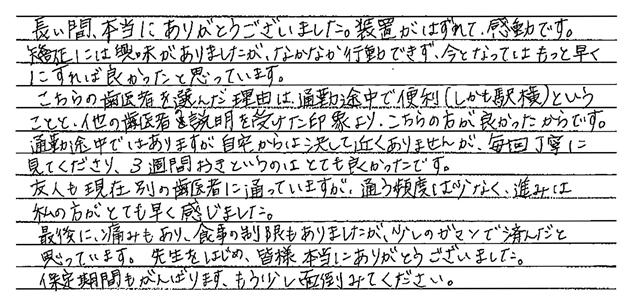 長い間、本当にありがとうございました。装置がはずれて、感動です。
矯正には興味がありましたが、なかなか行動できず、今となってはもっと早く
にすれば良かったと思っています。
こちらの歯医者を選んだ理由は、通勤途中で便利(しかも駅横)という
ことと、他の歯医者で説明を受けた印象より、こちらの方が良かったからです。
通勤途中ではありますが自宅からは決して近くありませんが、毎回丁寧に
見てくださり、3週間おきというのはとても良かったです。
友人も現在別の歯医者に通っていますが、通う頻度は少なく、進みは
私の方がとても早く感じました。
最後に、痛みもあり、食事の制限もありましたが、少しのガマンで済んだと
思っています。先生をはじめ、皆様本当にありがとうございました。
保定期間もがんばります、もう少し面倒みてください。